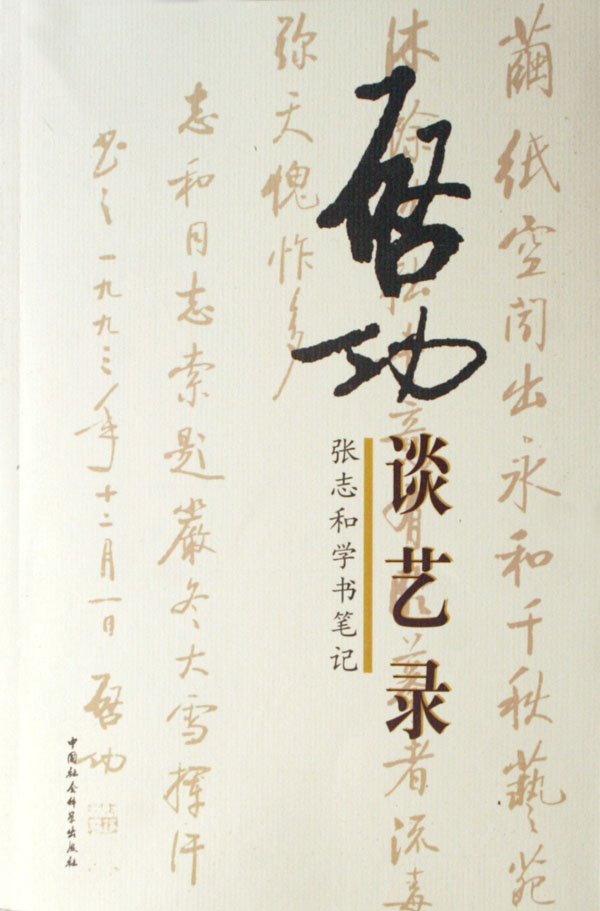 繭紙空闻出永和千秋藝苑
沐 者流毒
弥天愧怍多
志和同志索题嚴冬大雪揮汗
书之一九九三年十二月一日
啓功
啓功
谈艺录
张志和学书笔记
中国社会科学出版社